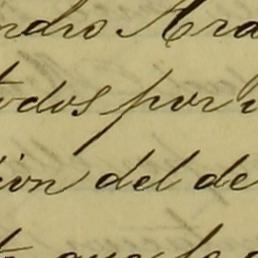 ndro Ara
todos por
ion del de
que se